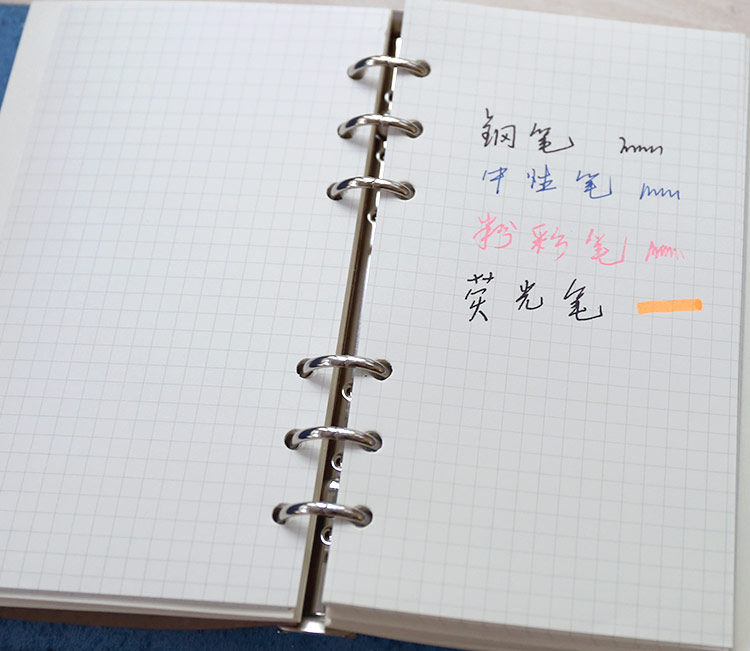 钢笔
中性笔
粉彩笔
荧光笔